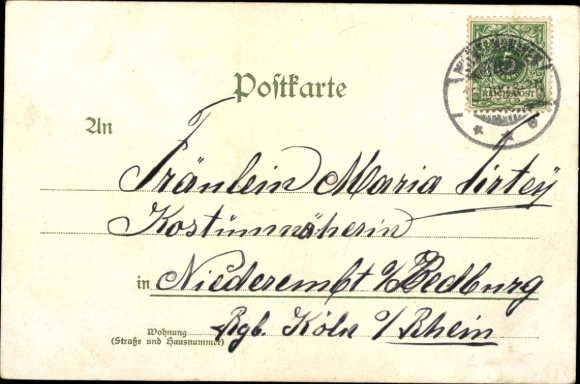 Postkarte
5
REICHSPOST
An
Fräulein Maria Firtey
Kostümnäherin
in Niederembt b/Bedburg
Rgb. Köln a/Rhein
Wohnung
(Straße und Hausnummer)